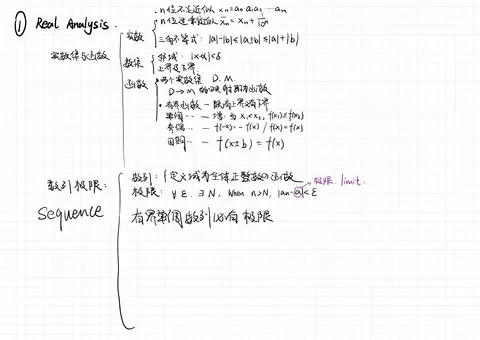 ① Real Analysis.
实数集与函数
实数
· n位不足近似 xn = a0.a1a2…an
· n位过剩近似 x̄n = xn + 1/10ⁿ
三角不等式: |a|-|b| ≤ |a±b| ≤ |a|+|b|
数集
邻域: |x-a|<δ
上界与下界
函数
· 两个实数集 D. M.
D→M 的映射称为函数
· 有界函数 — 既有上界又有下界
单调 ·· — 增: 当 x1<x2, f(x1)≤f(x2)
奇偶 ·· — f(-x)=-f(x) / f(x)=f(x)
周期 ·· — f(x±b)=f(x)
数列极限:
sequence
数列: f 定义域为全体正整数的函数
极限: ∀ε. ∃N, When n>N, |an-a|<ε
极限. limit.
有界单调数列必有极限